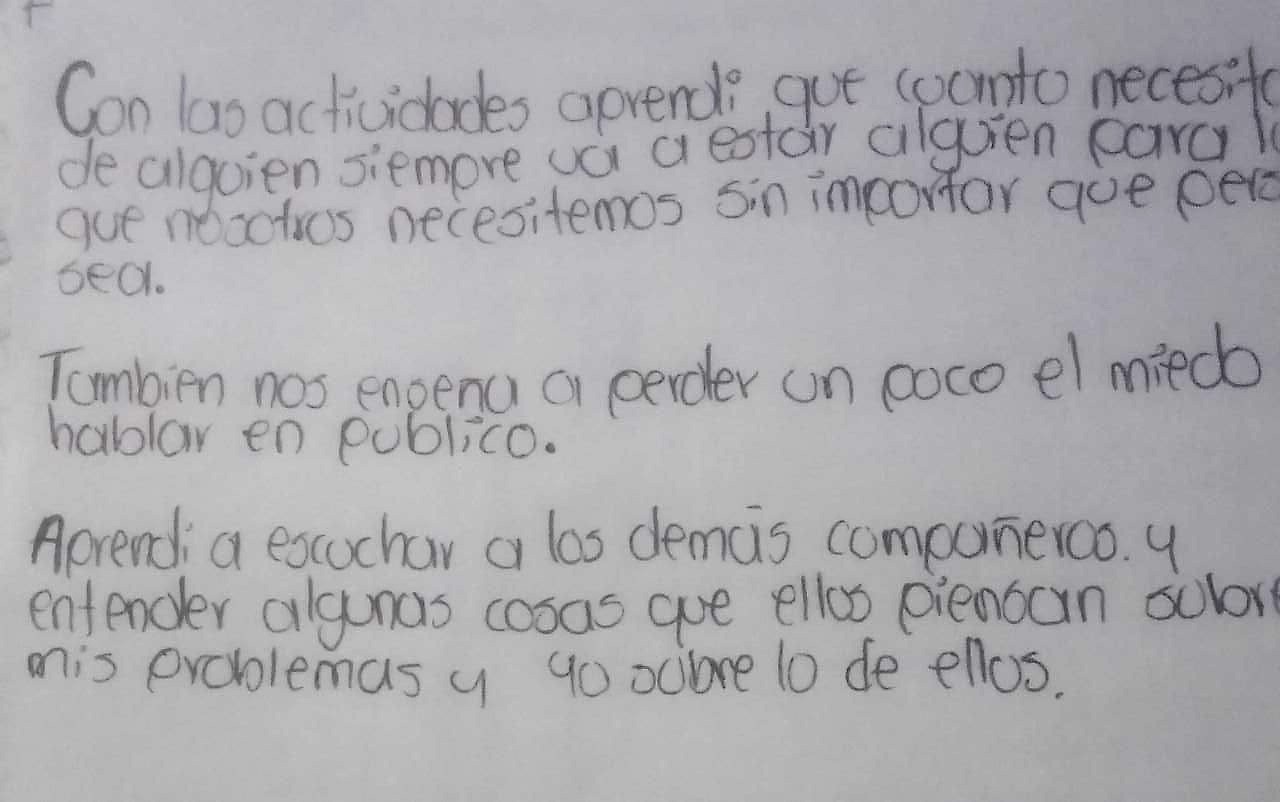 Con las actividades aprendi que cuanto necesito
de alguien siempre va a estar alguien para lo
que nosotros necesitemos sin importar que pers
sea.
Tambien nos ensena a perder un poco el miedo
hablar en publico.
Aprendi a escuchar a los demás compañeros. y
entender algunas cosas que ellos piensan sobre
mis problemas y yo sobre lo de ellos.